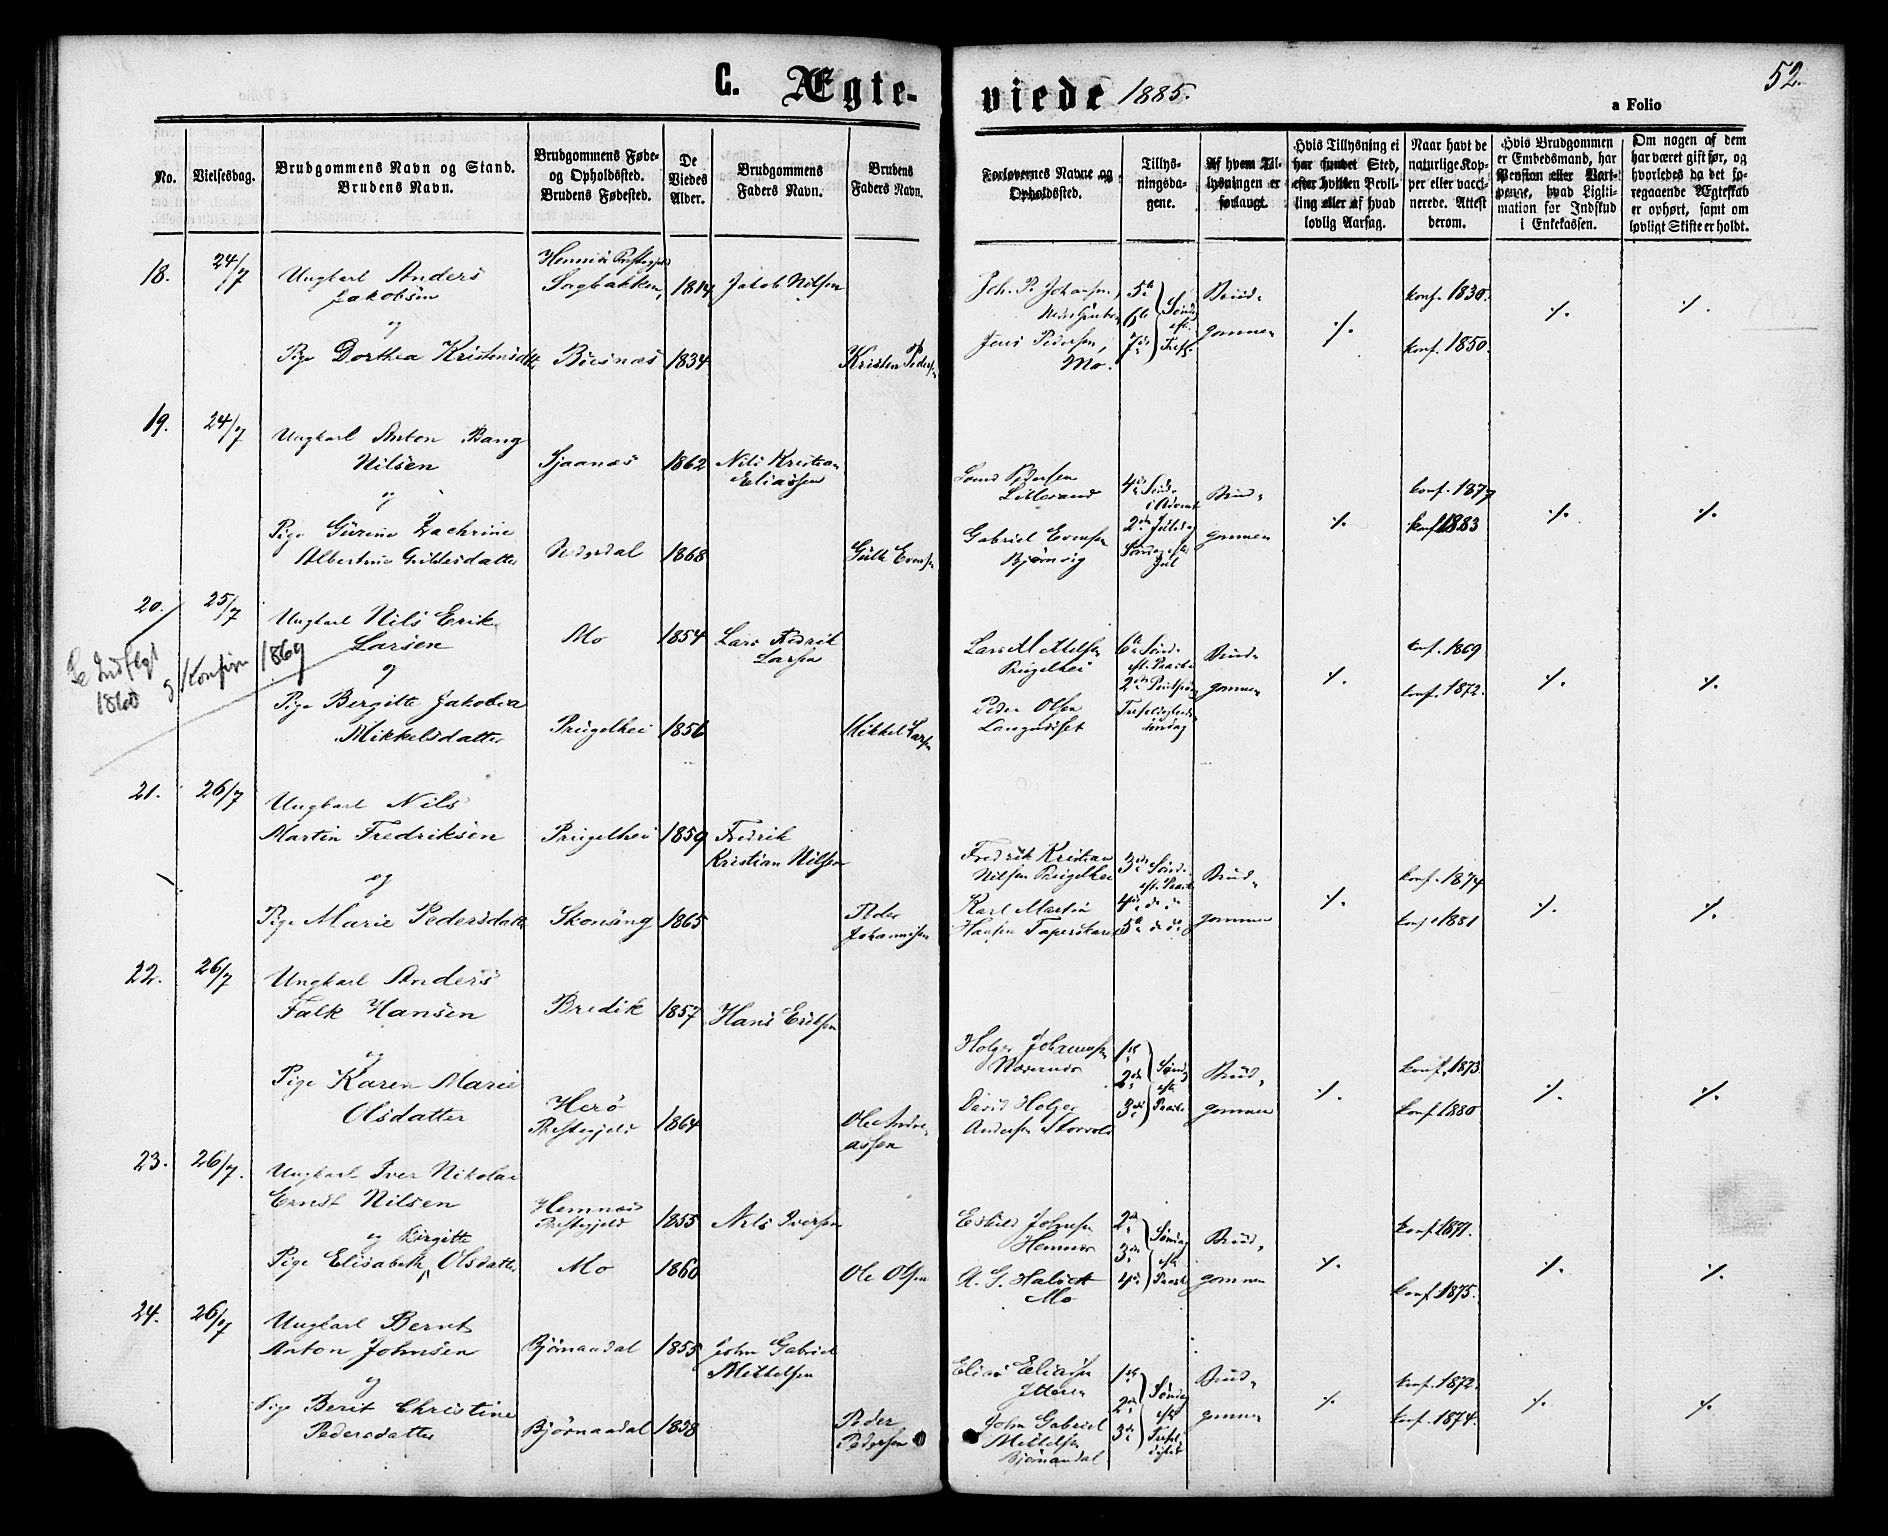 C. Ægte-
viede 1885.
a Folio
52.
No.
Vielsesdag.
Brudgommens Navn og Stand.
Brudens Navn.
Brudgommens Føde-
og Opholdssted.
Brudens Fødested.
De
Viedes
Alder.
Brudgommens
Faders Navn.
Brudens
Faders Navn.
Forlovernes Navne og
Opholdssted.
Tillys-
ningsda-
gene.
Af hvem Til-
lysningen er
forlangt.
Hvis Tillysning ei
har fundet Sted,
efter hvilken Bevil-
ling eller af hvad
lovlig Aarsag.
Naar havt de
naturlige Kop-
per eller vacci-
nerede. Attest
derom.
Hvis Brudgommen
er Embedsmand, har
Pension eller Vart-
penge, hvad Ligiti-
mation for Indskud
i Enkekassen.
Om nogen af dem
har været gift før, og
hvorledes da det fo-
regaaende Ægteskab
er ophørt, samt om
lovligt Skifte er holdt.
18. 24/7 Ungkarl Anders
Jakobsen
og
Pige Dorthea Kristensdtt.
Prestegjeld
1814 Jakob Nilsen
1834 Kristen Peders
Joh. P. Johansen,
Jens Pedersen,
Mo.
5te
6te
7de
Sønd.
eft.
Tref.
Brud-
gommen
%
konf. 1830.
konf. 1850.
%
%
19. 24/7 Ungkarl Anton Bang
Nilsen
og
Pige
Albertine
Sjaanæs 1862 Nils Kristian
Eliassen
1868
Pedersen
Gabriel Evensen
Bjørnvig
4de Sønd.
i Advent
2den Juledag
Søndag eft.
Jul
Brud-
gommen
%
konf. 1877
konf. 1883
%
%
20. 25/7 Ungkarl Nils Erik
Larsen
og
Pige Bergitte Jakobea
Mikkelsdatter
1860 og Konfirm 1869
Mo 1854 Lars Fredrik
Larsen
1856 Mikkel Larsen
Peder Olsen
6te Sønd.
eft. Paaske
2den
søndag
Brud-
gommen
%
konf. 1869
konf. 1872.
%
%
21. 26/7 Ungkarl Nils
Martin Fredriksen
og
Pige Marie Pedersdatt
1859 Fredrik
Kristian Nilsen
1865 Peder
Johannesen
Fredrik Kristian
Nilsen
Karl Martin
Hansen
3die Sønd.
eft. Paaske
4de do do
5te do do
Brud-
gommen
%
konf. 1874
konf. 1881
%
%
22. 26/7 Ungkarl Anders
Falk Hansen
og
Pige Karen Marie
Olsdatter
Bredik 1857 Hans Eriksen
Herø
Prestegjeld 1864 Ole Andre-
assen
Holger Johannesen
David Holger
Andersen
1ste
2den
3die
Sønd.
eft.
Paaske
Brud-
gommen
%
konf. 1873
konf. 1880
%
%
23. 26/7. Ungkarl Iver Nikolai
Ernst Nilsen
og Birgitte
Pige Elisabeth Olsdatter
Hemnæs
Prestegjeld 1855 Nils Iversen
Mo 1860 Ole Olsen
Johnsen
Hemnæs
Mo
2den
3die
4de
Søndag
eft.
Paaske
Brud-
gommen
%
konf. 1871.
konf. 1875.
%
%
24. 26/7 Ungkarl Bernt
Anton Johnsen
og
Pige Berit Christine
Pedersdatter
Bjørnaadal 1855 John Gabriel
Mikkelsen
Bjørnaadal 1858 Peder
Pedersen
Elias Eliasen
Ytteren
John Gabriel
Mikkelsen
Bjørnaadal
1ste
2den
3die
Søndag
eft.
Brud-
gommen
%
konf. 1872.
konf. 1874.
%
%